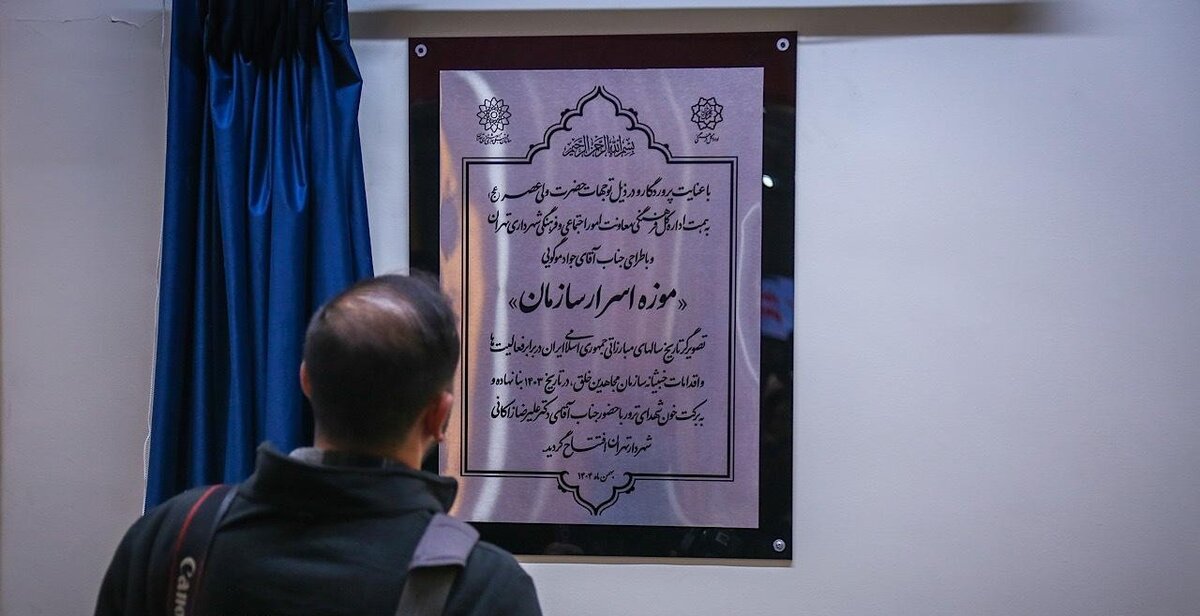 بسم الله الرحمن الرحیم
با عنایت پروردگار و در ذیل توجهات حضرت ولی عصر (عج)،
به همت اداره کل فرهنگی معاونت امور اجتماعی و فرهنگی شهرداری تهران
و با طراحی جناب آقای جواد موگویی
«موزه اسرار سازمان»
تصویرگر تاریخ سالهای مبارزاتی جمهوری اسلامی ایران در برابر فعالیت ها
و اقدامات خبیثانه سازمان مجاهدین خلق، در تاریخ ۱۴۰۳ بنا نهاده و
به برکت خون شهدای ترور با حضور جناب آقای دکتر علیرضا زاکانی
شهردار تهران افتتاح گردید.
بهمن ماه ۱۴۰۴
Canon